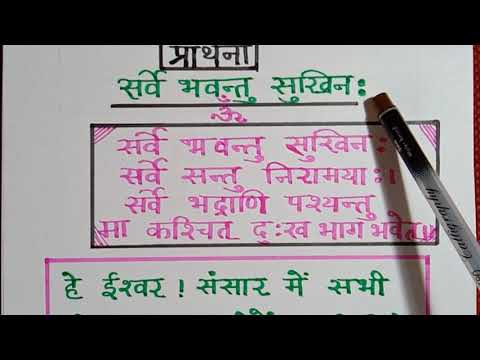 प्रार्थना
सर्वे भवन्तु सुखिनः
ॐ
सर्वे भवन्तु सुखिनः
सर्वे सन्तु निरामयाः।
सर्वे भद्राणि पश्यन्तु
मा कश्चित् दुःख भाग भवेत्॥
हे ईश्वर! संसार में सभी
Calligraphy